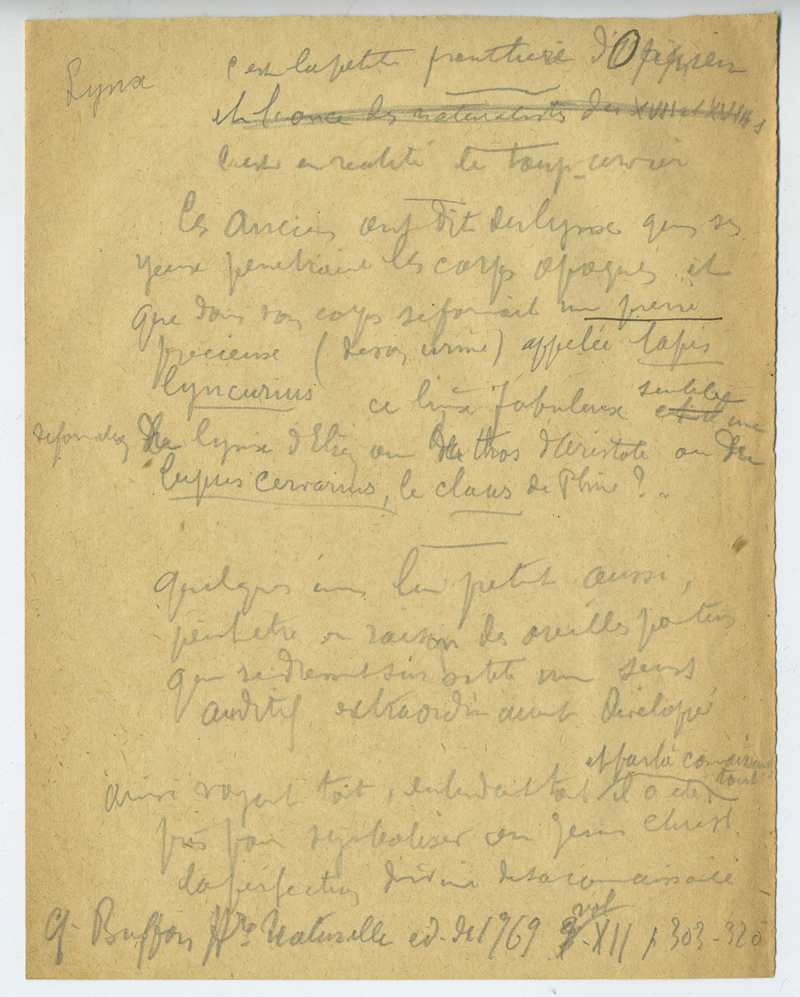 Lynx
c'est la petite panthère d'Oppien
et l'once des naturalistes des XVII et XVIII s
C'est en realité le loup-cervier
Les Anciens ont dit du lynx que ses
yeux penetraient les corps opaques et
que dans son corps se formait une pierre
precieuse (de son urine) appelée lapis
lyncurius ce lynx fabuleux semble être
lynx d'Elien ou thos d'Aristote ou
lupus cervarius, le chaus de Pline ?
quelques uns lui petit aussi,
peut être en raison des oreilles pointues
qui se dressent sur sa tete un sens
auditif extraordinairement développé
et par là connaissant tout
ainsi voyant tout, entendant tout il a été
pris pour symboliser en Jesus Christ
la perfection divine de sa connaissance
cf. Buffon Hre Naturelle ed. de 1769 vol XII p 303-320